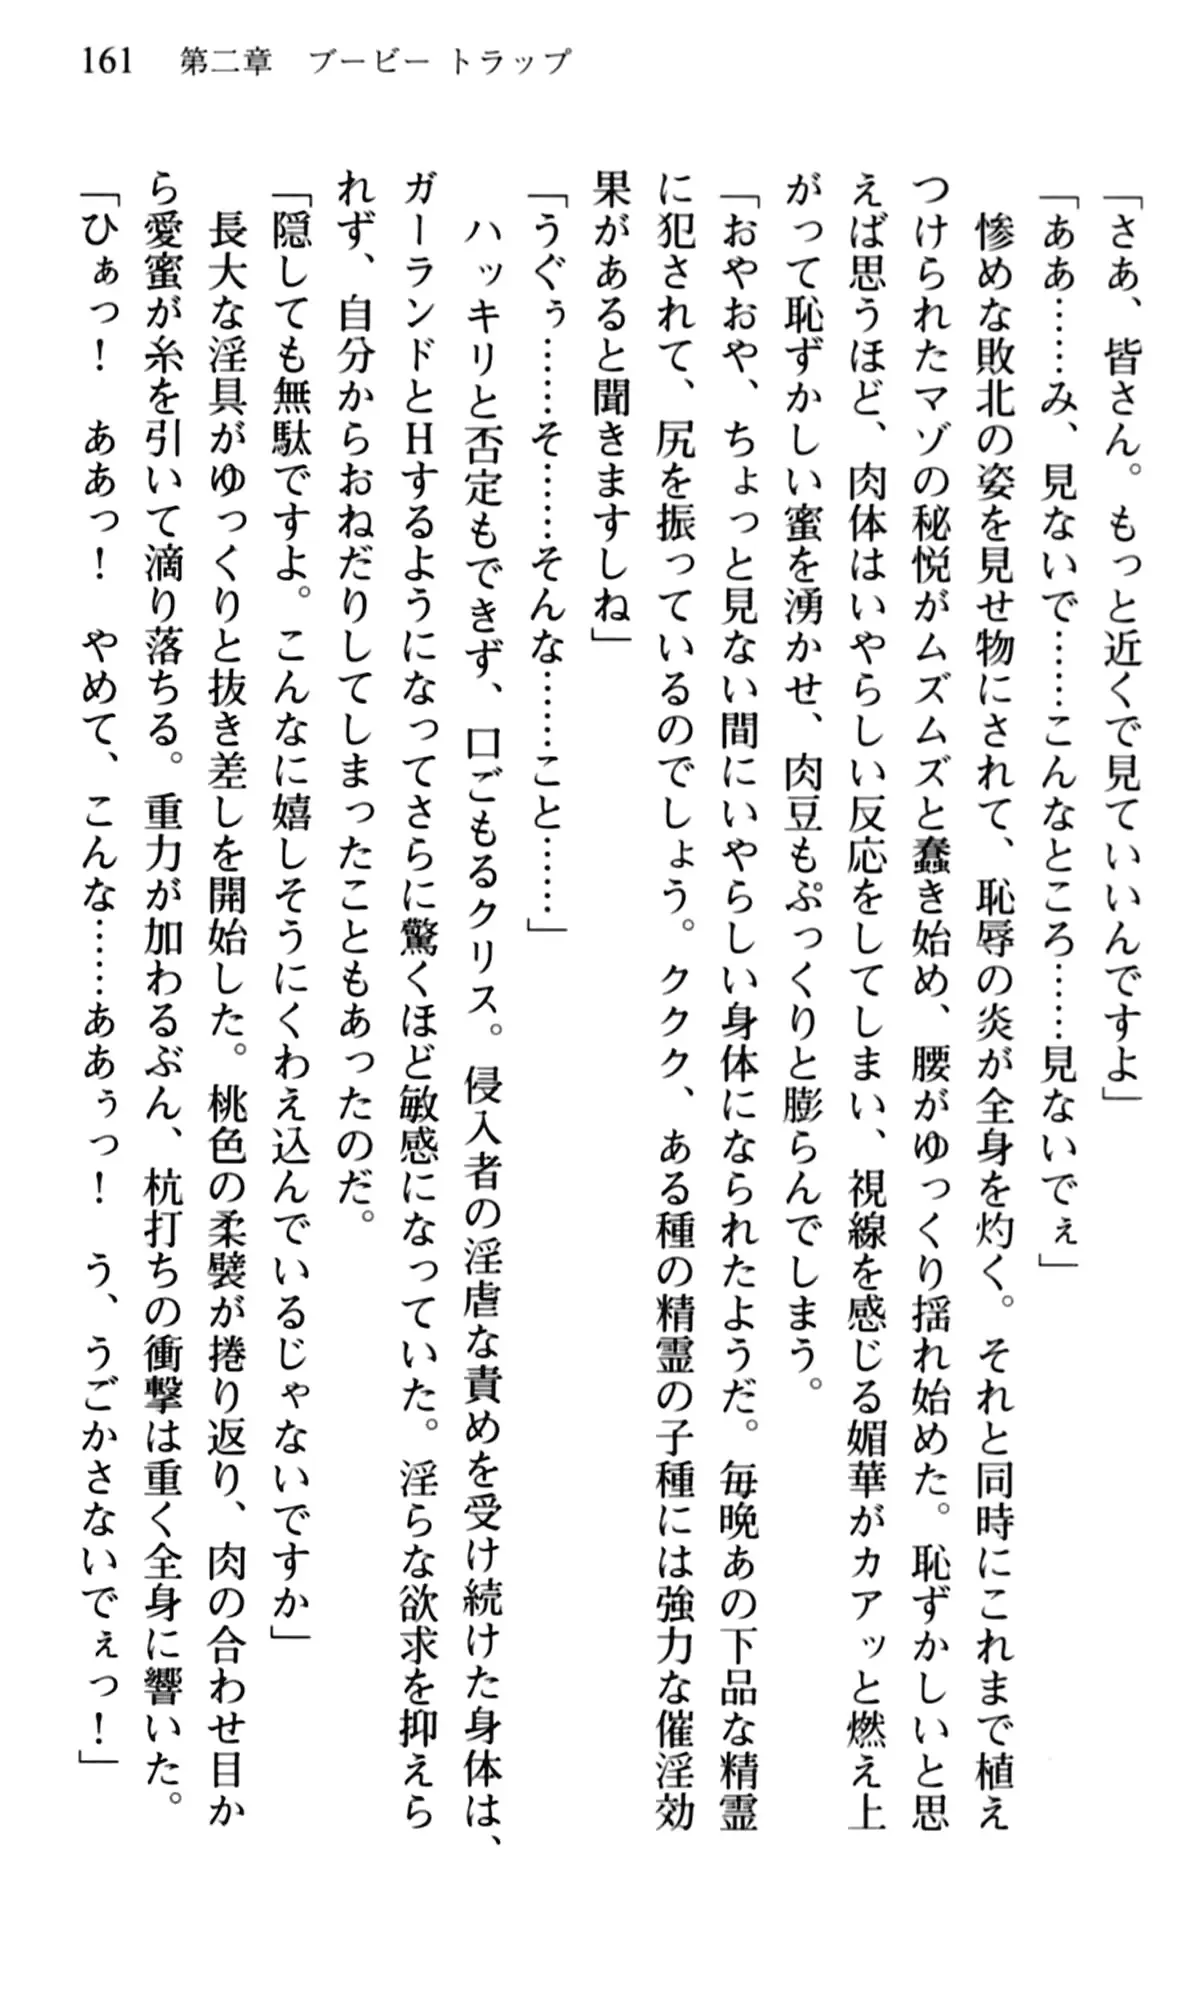 161 第二章 ブービートラップ
「さあ、皆さん。もっと近くで見ていいんですよ」
「ああ……み、見ないで……こんなところ……見ないでぇ」
惨めな敗北の姿を見せ物にされて、恥辱の炎が全身を灼く。それと同時にこれまで植え
つけられたマゾの秘悦がムズムズと蠢き始め、腰がゆっくり揺れ始めた。恥ずかしいと思
えば思うほど、肉体はいやらしい反応をしてしまい、視線を感じる媚華がカアッと燃え上
がって恥ずかしい蜜を湧かせ、肉豆もぷっくりと膨らんでしまう。
「おやおや、ちょっと見ない間にいやらしい身体になられたようだ。毎晩あの下品な精霊
に犯されて、尻を振っているのでしょう。ククク、ある種の精霊の子種には強力な催淫効
果があると聞きますしね」
「うぐぅ………そ………そんな………こと……」
ハッキリと否定もできず、口ごもるクリス。侵入者の淫虐な責めを受け続けた身体は、
ガーランドとHするようになってさらに驚くほど敏感になっていた。淫らな欲求を抑えら
れず、自分からおねだりしてしまったこともあったのだ。
「隠しても無駄ですよ。こんなに嬉しそうにくわえ込んでいるじゃないですか」
長大な淫具がゆっくりと抜き差しを開始した。桃色の柔襞が捲り返り、肉の合わせ目か
ら愛蜜が糸を引いて滴り落ちる。重力が加わるぶん、杭打ちの衝撃は重く全身に響いた。
「ひぁっ！　ああっ！　やめて、こんな……ああぅっ！　う、うごかさないでぇっ！」